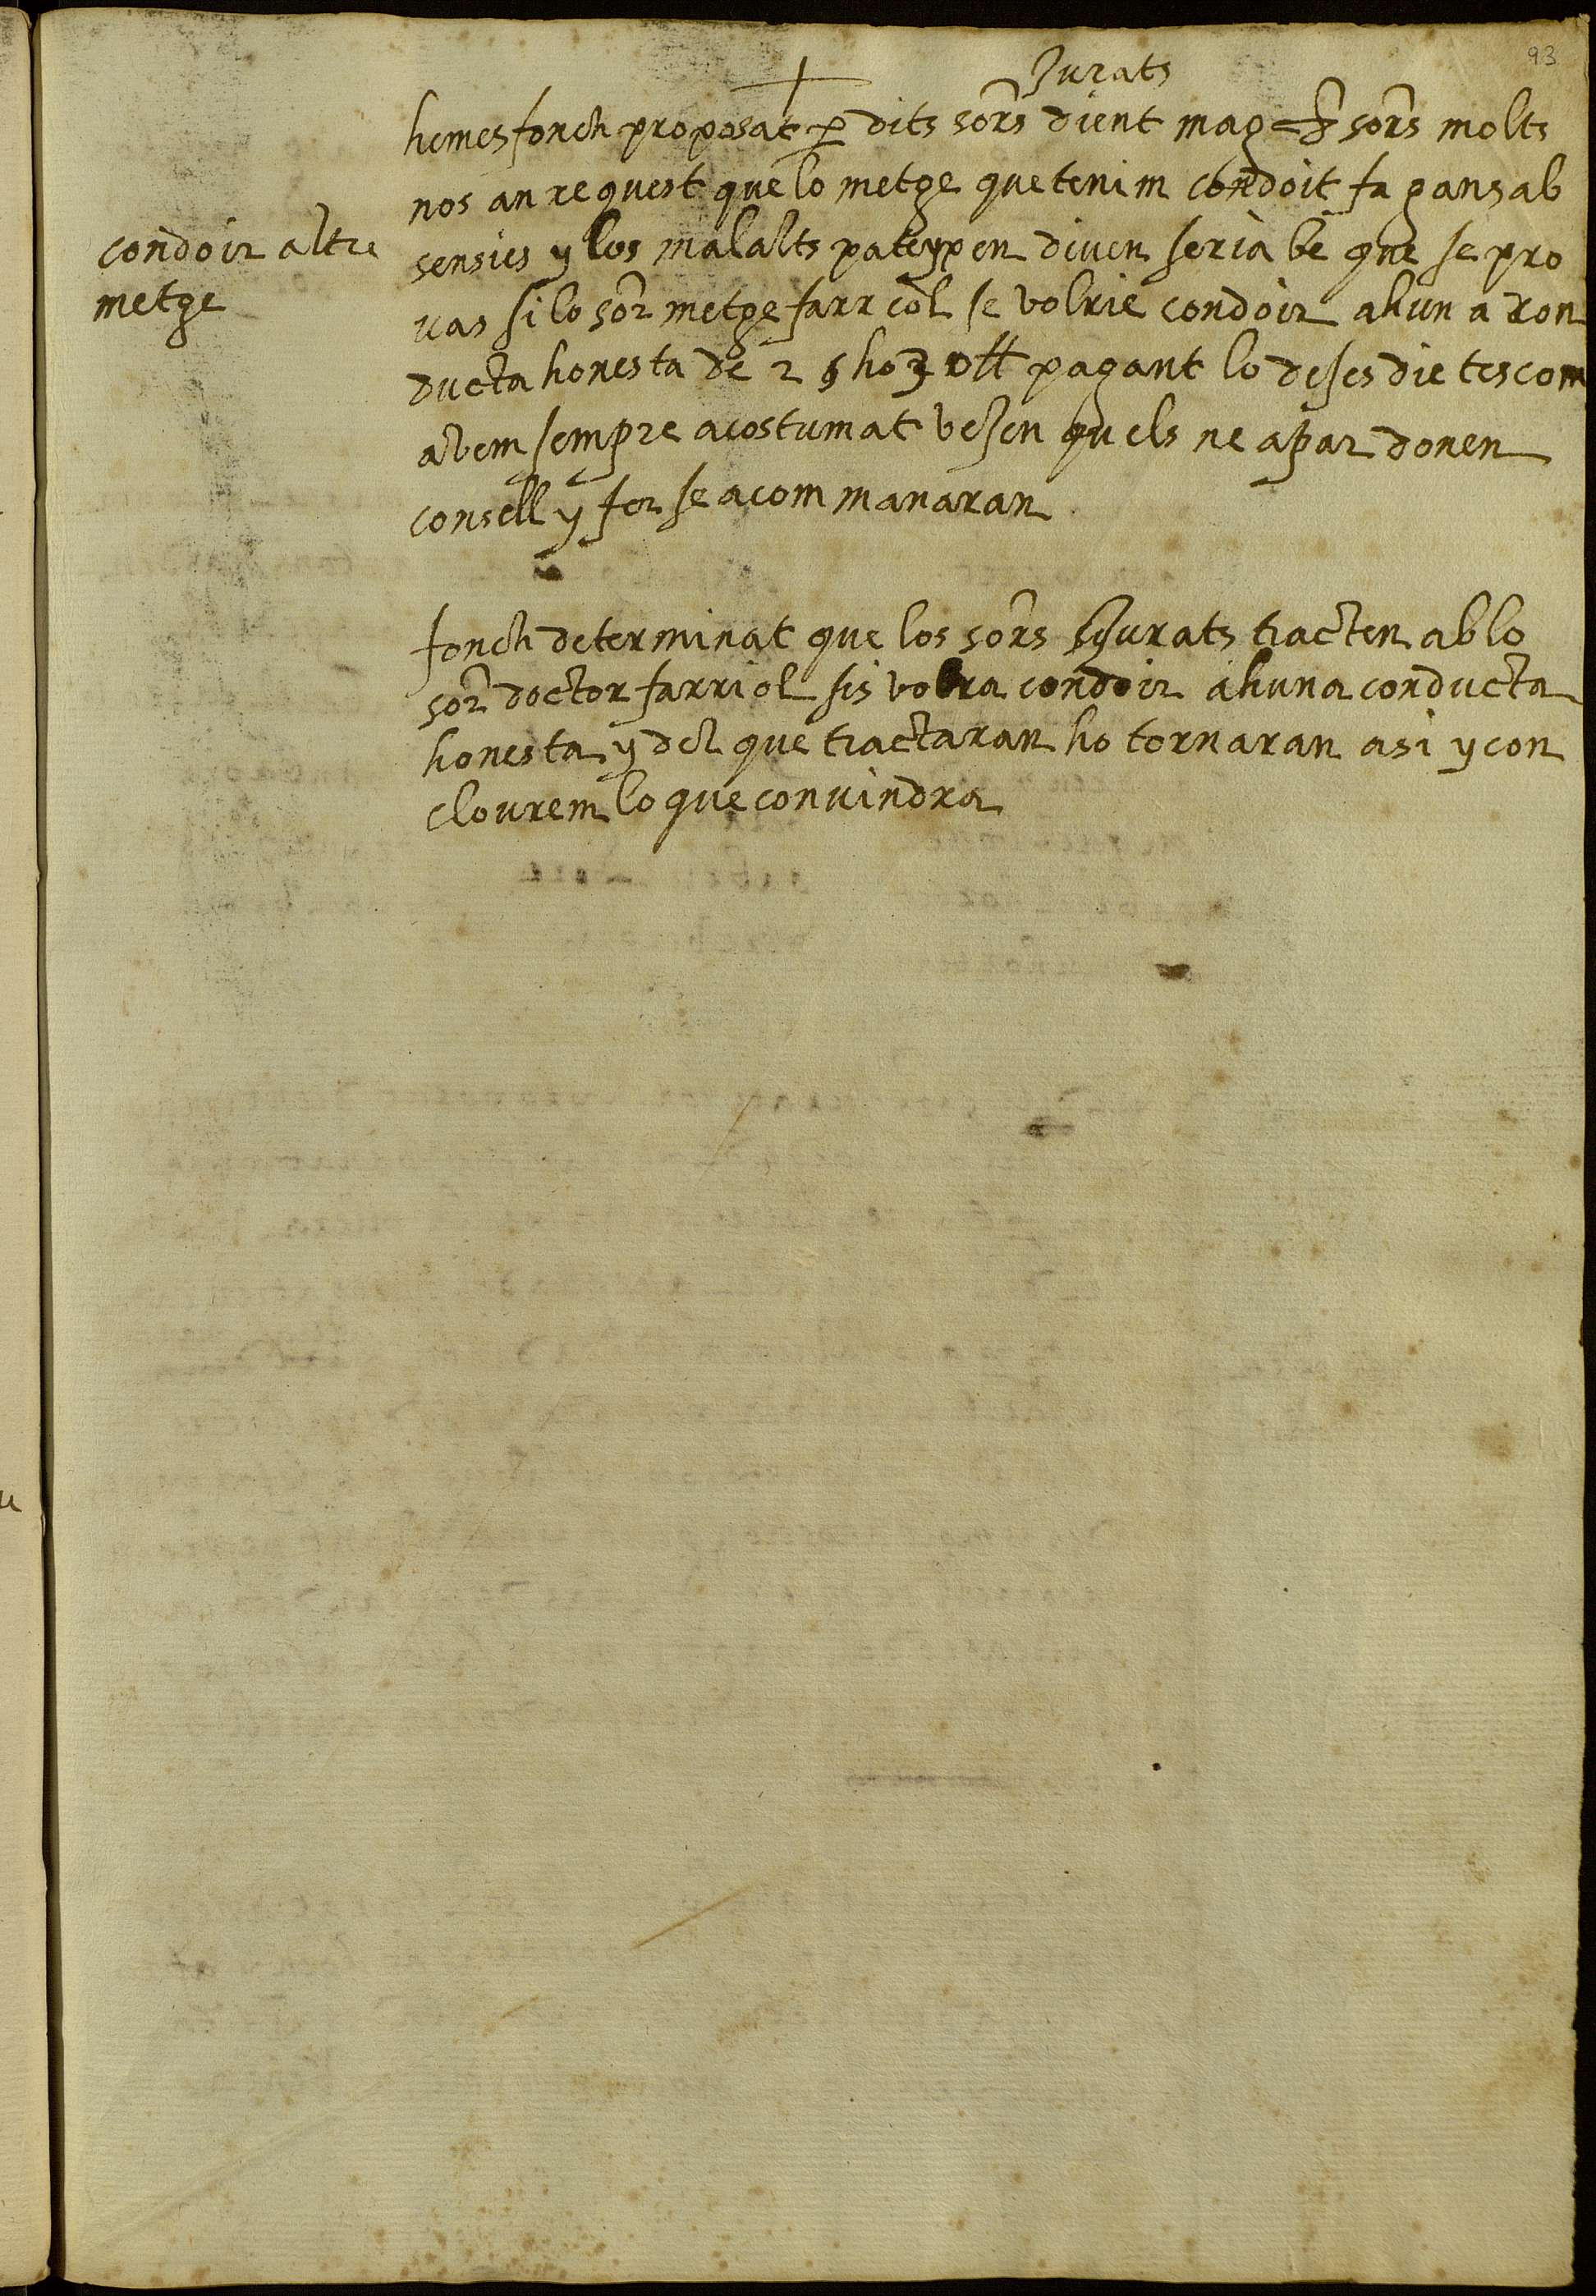 93
Jurats
hemes fonch proposat p dits sors dient mag sors molts
nos an request que lo metge que tenim condoit fa gans ab
sensies y los malalts pateyxen diven seria be que se pro
condoir altre
metge
vas si lo sor metge farriol se volrie condoir a huna con
ducta honesta de 25 ho 30 ll pagant lo de ses dietes com
avem sempre acostumat vesen quels ne apar donen
consell y fer se a com manaran
fonch determinat que los sors Jurats tracten ab lo
sor doctor farriol sis volra condoir a huna conducta
honesta y del que tractaran ho tornaran asi y con
clourem lo que convindra